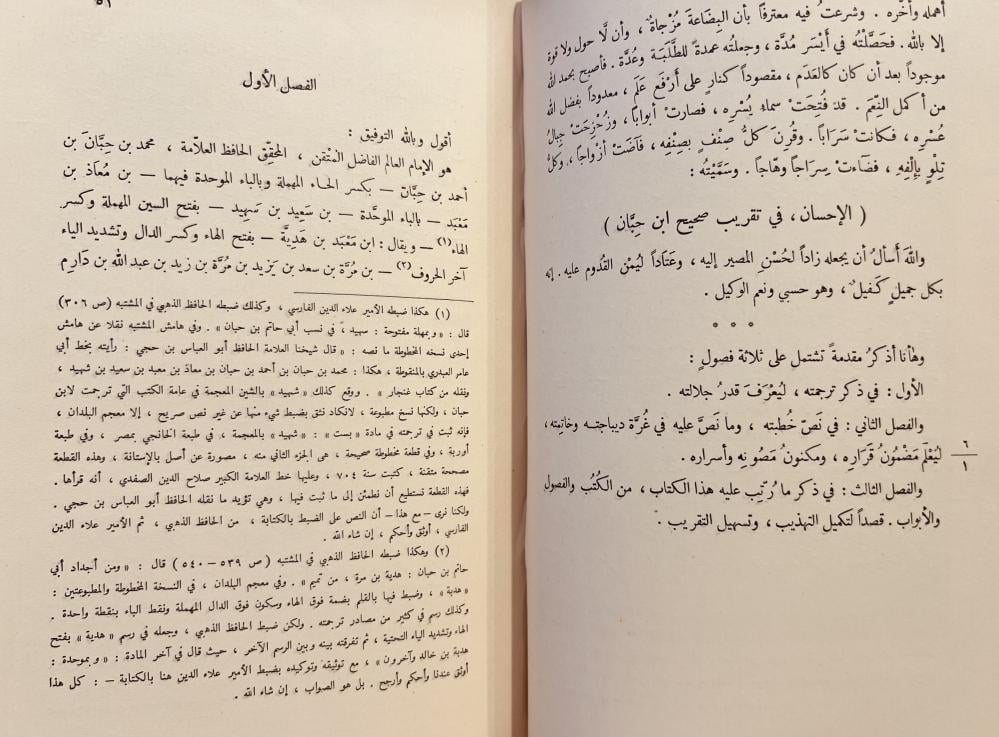 أهمله وأخّره . وشرعتُ فيه معترفاً بأن البِضَاعةَ مُزْجاةٌ ، وأن لَّا حول ولا قوة
إلا بالله . فحَصَّلْتُه في أَيْسَر مُدَّة ، وجعلتُه عمدةً للطَّلَبَة وعُدَّة . فأصبح بحمد الله
موجوداً بعد أن كان كالعَدَم ، مقصوداً كنارٍ على أَرْفَع عَلَم ، معدوداً بفضل الله
من أكمل النِّعَم . قد فُتِحَتْ سماءُ يُسْرِه ، فصارتْ أبوابا ، وزُحْزِحَتْ جِبالُ
عُسْرِه ، فكانتْ سَرَابًا . وقُرِنَ كلُّ صنْفٍ بصِنْفِه ، فآضَتْ أزْواجاً ، وكلُّ
تِلْوٍ بإِلْفِه ، فضاءتْ سِراجاً وهّاجاً . وسَمَّيْتُه :
( الإحسان ، في تقريب صحيح ابن حِبَّان )
واللهَ أسألُ أن يجعله زاداً لحُسْنِ المصير إليه ، وعَتَاداً ليُمْن القُدوم عليه . إنه
بكل جميلٍ كَفيلٌ ، وهو حسبي ونعم الوكيل .
* * *
وهأنا أذكرُ مقدمةً تشتمل على ثلاثة فصولٍ :
الأول : في ذكر ترجمته ، ليُعْرَفَ قدرُ جلالته .
والفصل الثاني : في نَصّ خُطبته ، وما نَصَّ عليه في غُرَّة ديباجتـه وخاتِمته ،
ليُعْلَم مَضْمُونُ قَرَارِه ، ومكنونُ مَصُونِه وأسراره .
٦
١
والفصل الثالث : في ذكر ما رُتِّب عليه هذا الكتاب ، من الكُتُب والفصول
والأبواب . قصداً لتكميل التهذيب ، وتسهيل التقريب .
٥١
الفصل الأول
أقول وبالله التوفيق :
هو الإمام العالم الفاضل المتْقن ، المحقِّق الحافظ العلّامة ، محمد بن حِبَّانَ بن
أحمد بن حِبَّانَ – بكسر الحـاء المهملة وبالباء الموحدة فيهما – بن مُعاذ بن
مَعْبَد – بالباء الموحَّدة – بن سَعِيد بن سَهِيد – بفتح السين المهملة وكسر
الهاء (١) – ويقال : ابن مَعْبَد بن هَدِيَّة – بفتح الهاء وكسر الدال وتشديد الياء
آخر الحروف (٢) – بن مُرَّة بن سعد بن يَزيد بن مُرَّة بن زيد بن عبد الله بن دَارِم
(١) هكذا ضبطه الأمير علاء الدين الفارسي ، وكذلك ضبطه الحافظ الذهبي في المشتبه (ص ٣٠٦)
قال : « وبمهلة مفتوحة : سهيد ، في نسب أبي حاتم بن حبان » . وفي هامش المشتبه نقلا عن هامش
إحدى نسخه المخطوطة ما نصه : « قال شيخنا العلامة الحافظ أبو العباس بن حجي : رأيته بخط أبي
عامر العبدري بالمنقوطة ، هكذا : محمد بن حبان بن أحمد بن حبان بن معاذ بن معبد بن سعيد بن شهيد ،
ونقله من كتاب غنجار » . ووقع كذلك « شهيد » بالشين المعجمة في عامة الكتب التي ترجمت لابن
حبان ، ولكنها نسخ مطبوعة ، لانكاد نثق بضبط شيء منها عن غير نص صريح ، إلا معجم البلدان ،
فإنه ثبت في ترجمته في مادة « بست » : « شهيد » بالمعجمة ، في طبعة الخانجي بمصر ، وفي طبعة
أوربة ، وفي قطعة مخطوطة صحيحة ، هى الجزء الثاني منه ، مصورة عن أصل بالإستانة ، وهذه القطعة
مصححة متقنة ، كتبت سنة ٧٠٤ ، وعليها خط العلامة الكبير صلاح الدين الصفدي ، أنه قرأها .
فهذه القطعة نستطيع أن نطمئن إلى ما ثبت فيها ، وهي تؤيد ما نقله الحافظ أبو العباس بن حجي .
ولكنا نرى – مع هذا – أن النص على الضبط بالكتابة ، من الحافظ الذهبي ، ثم الأمير علاء الدين
الفارسي ، أوثق وأحكم ، إن شاء الله .
(٢) وهكذا ضبطه الحافظ الذهبي في المشتبه ( ص ٥٣٩ – ٥٤٠ ) قال : « ومن أجداد أبي
حاتم بن حبان : هدية بن مرة ، من تميم » . وفي معجم البلدان ، في النسخة المخطوطة والمطبوعتين :
« هدبة » ، وضبط فيها بالقلم بضمة فوق الهاء وسكون فوق الدال المهملة ونقط الباء بنقطة واحدة .
وكذلك رسم في كثير من مصادر ترجمته . ولكن ضبط الحافظ الذهبي ، وجعله في رسم « هدية » بفتح
الهاء وتشديد الياء التحتية ، ثم تفرقته بينه وبين الرسم الآخر ، حيث قال في آخر المادة : « وبموحدة :
هدبة بن خالد وآخرون » ، مع توثيقه وتوكيده بضبط الأمير علاء الدين هنا بالكتابة – : كل هذا
أوثق عندنا وأحكم وأرجح . بل هو الصواب ، إن شاء الله .